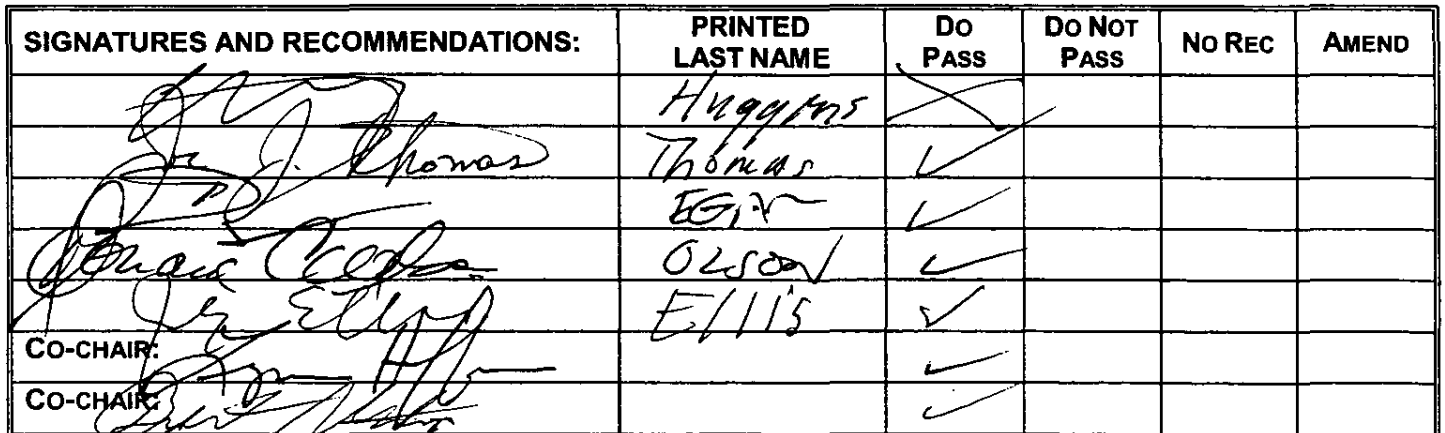 SIGNATURES AND RECOMMENDATIONS: PRINTED LAST NAME DO PASS DO NOT PASS NO REC AMEND
Huggins
J. Thomas Thomas ✓
EGAN ✓
Donald C Olson OLSON ✓
Ellis ✓
CO-CHAIR: ✓
CO-CHAIR: ✓